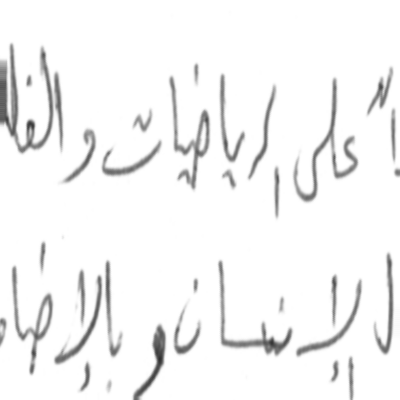 على الرياضيات و الفل
الإنسان و بالإضا